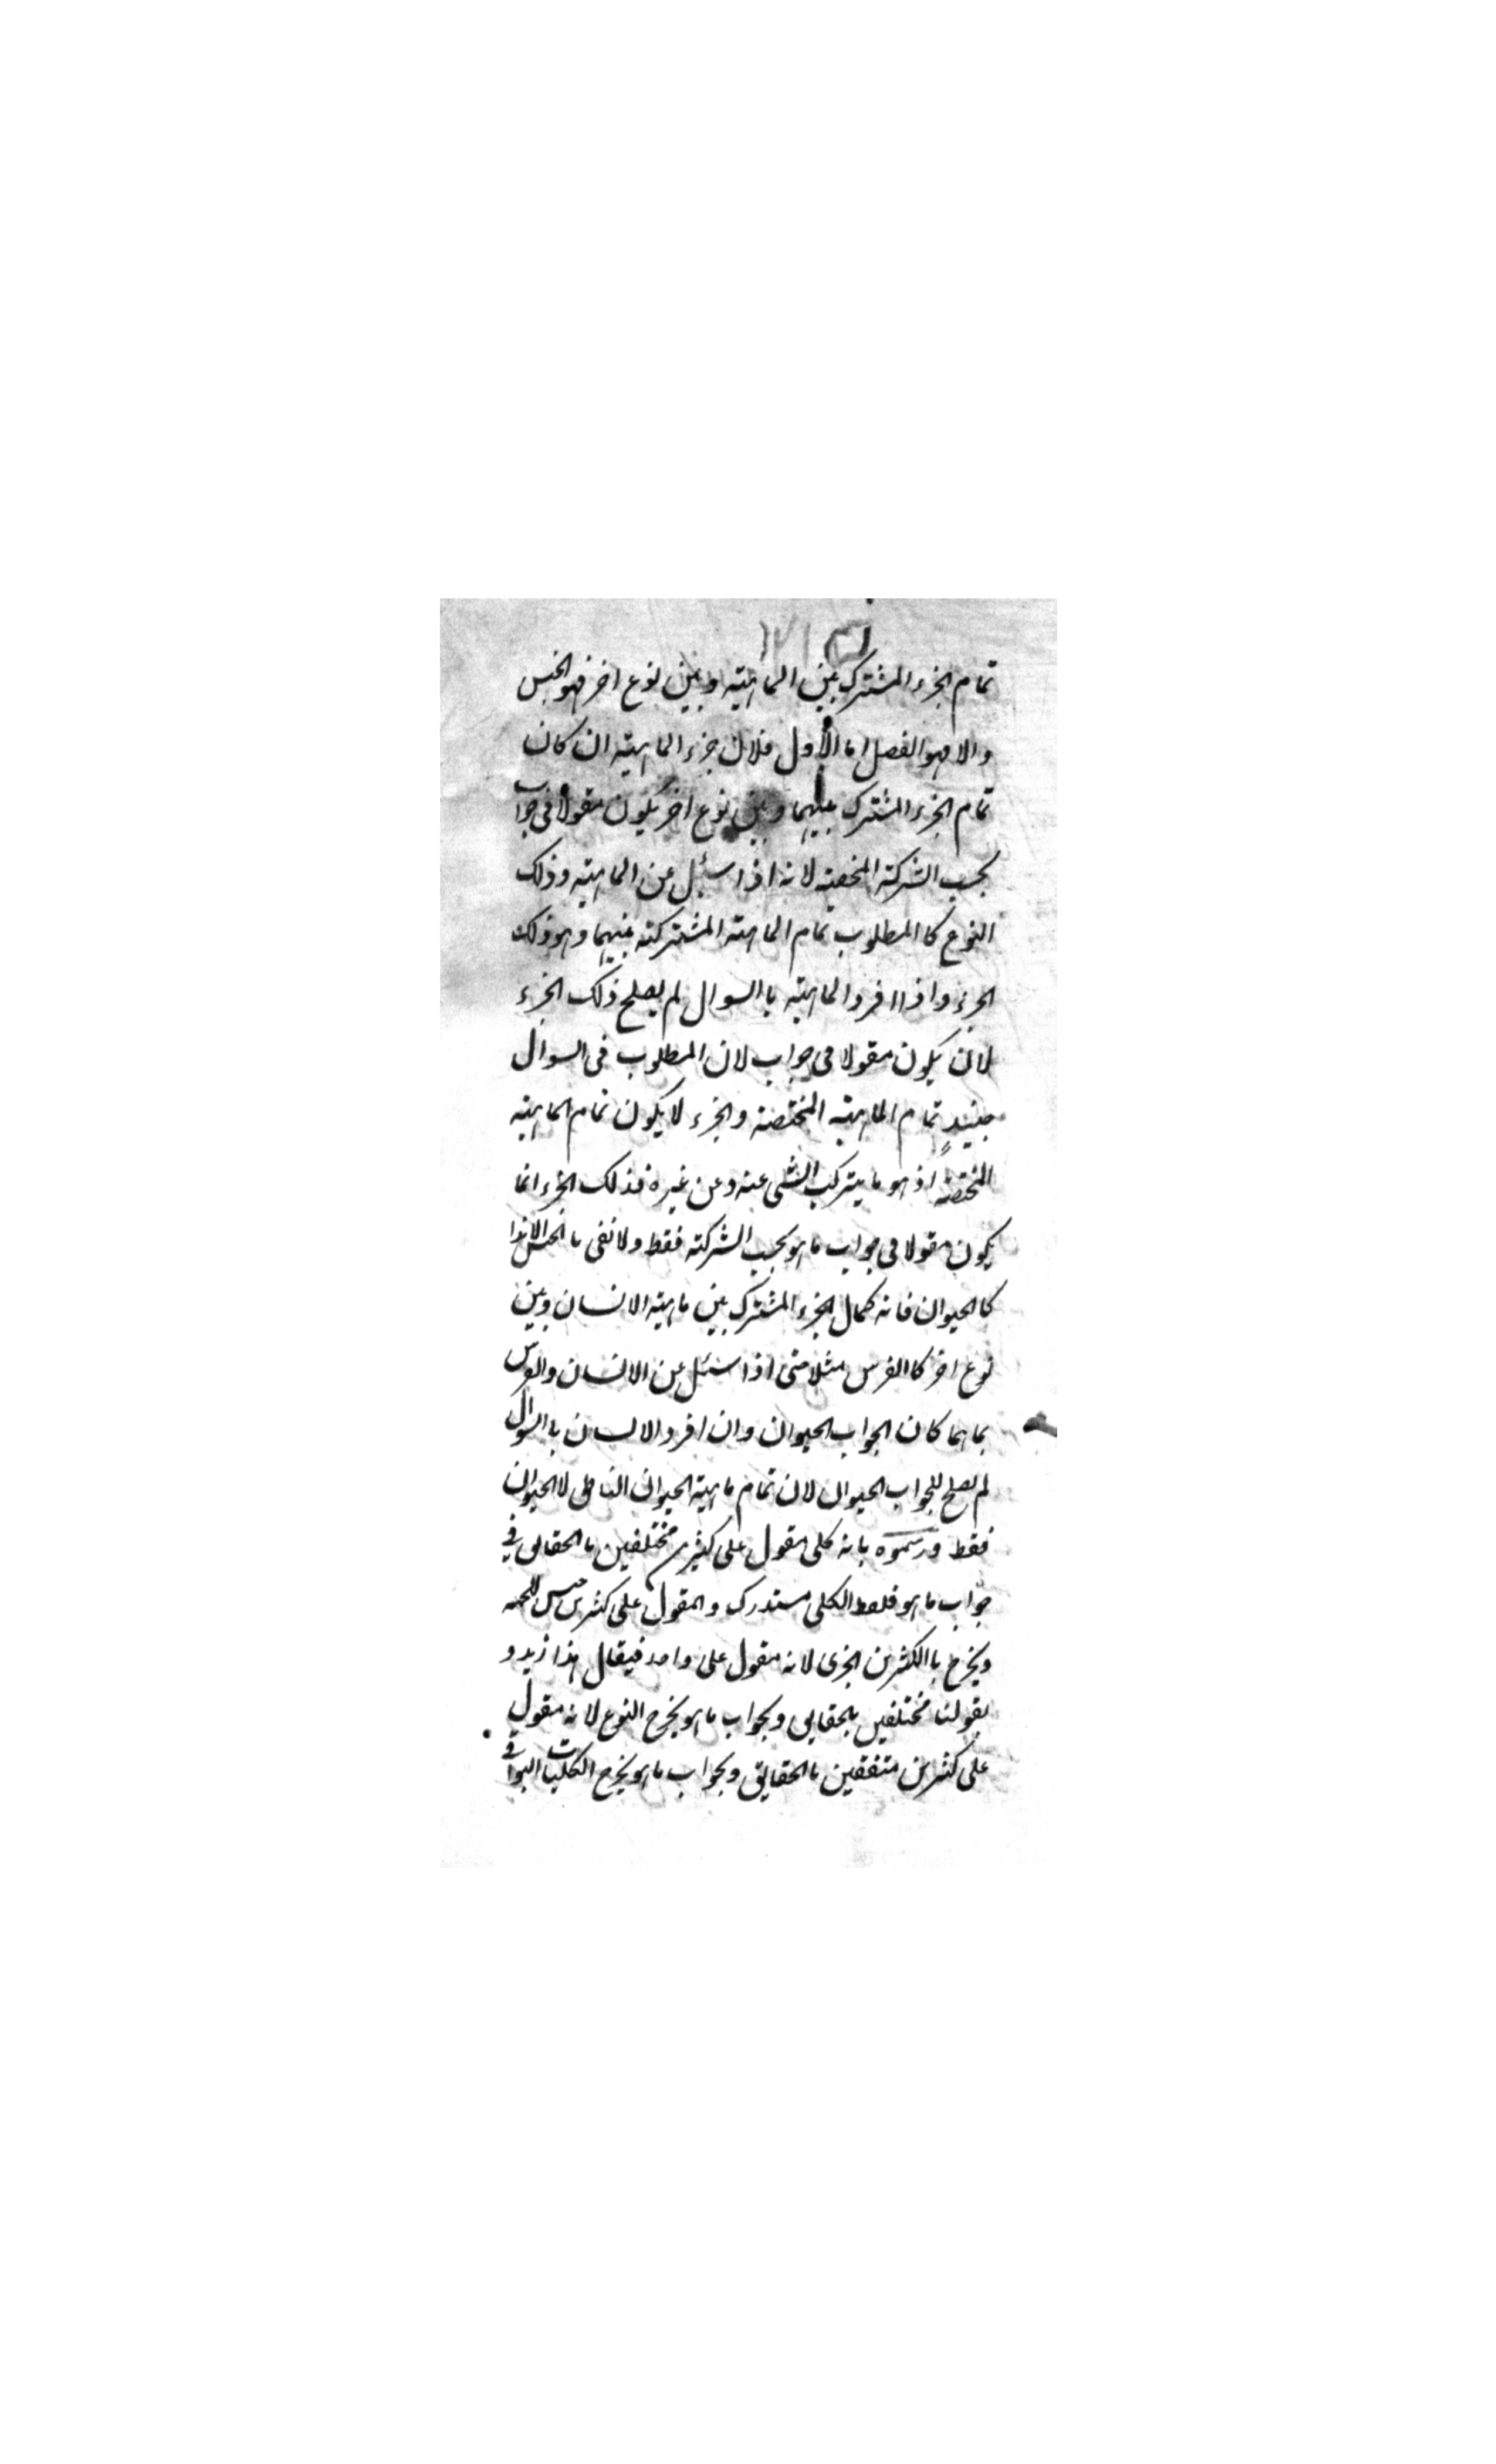 تمام الجزء المشترك بين الماهية وبين نوع اخر فهو الجنس
والا فهو الفصل اما الأول فلان جزء الماهية ان كان
تمام الجزء المشترك بينهما وبين نوع اخر يكون مقولا فى جواب
بحسب الشركة المحضة لانه اذا سئل عن الماهية وذلك
النوع كا المطلوب تمام الماهية المشتركة بينهما وهو ذلك
الجزء واذا افرد الماهية باالسوال لم يصلح ذلك الجزء
لان يكون مقولا فى جواب لان المطلوب فى السوال
حينيذٍ تمام الماهية المختصة والجزء لا يكون تمام الماهية
المختصة اذ هو ما يتركب الشى عنه وعن غيره فذلك الجزء انما
يكون مقولا فى جواب ما هو بحسب الشركة فقط ولا نعنى باالجنس الا هذا
كا الحيوان فانه كمال الجزء المشترك بين ماهية الانسان وبين
نوع اخر كا الفرس مثلا متى اذا سئل عن الانسان والفرس
بما هما كان الجواب الحيوان وان افرد الانسان باالسوال
لم يصلح للجواب الحيوان لان تمام ماهية الحيوان الناطق لا الحيوان
فقط ورسموه بانه كلى مقول على كثيرين مختلفين باالحقايق فى
جواب ما هو فلفظ الكلى مستدرك والمقول على كثيرين جنس للخمسة
ويخرج باالكثيرين الجزى لانه مقول على واحد فيقال هذا زيد و
بقولنا مختلفين بالحقايق وبجواب ما هو يخرج النوع لانه مقول
على كثيرين متفقين باالحقايق وبجواب ما هو يخرج الكليات البواقى